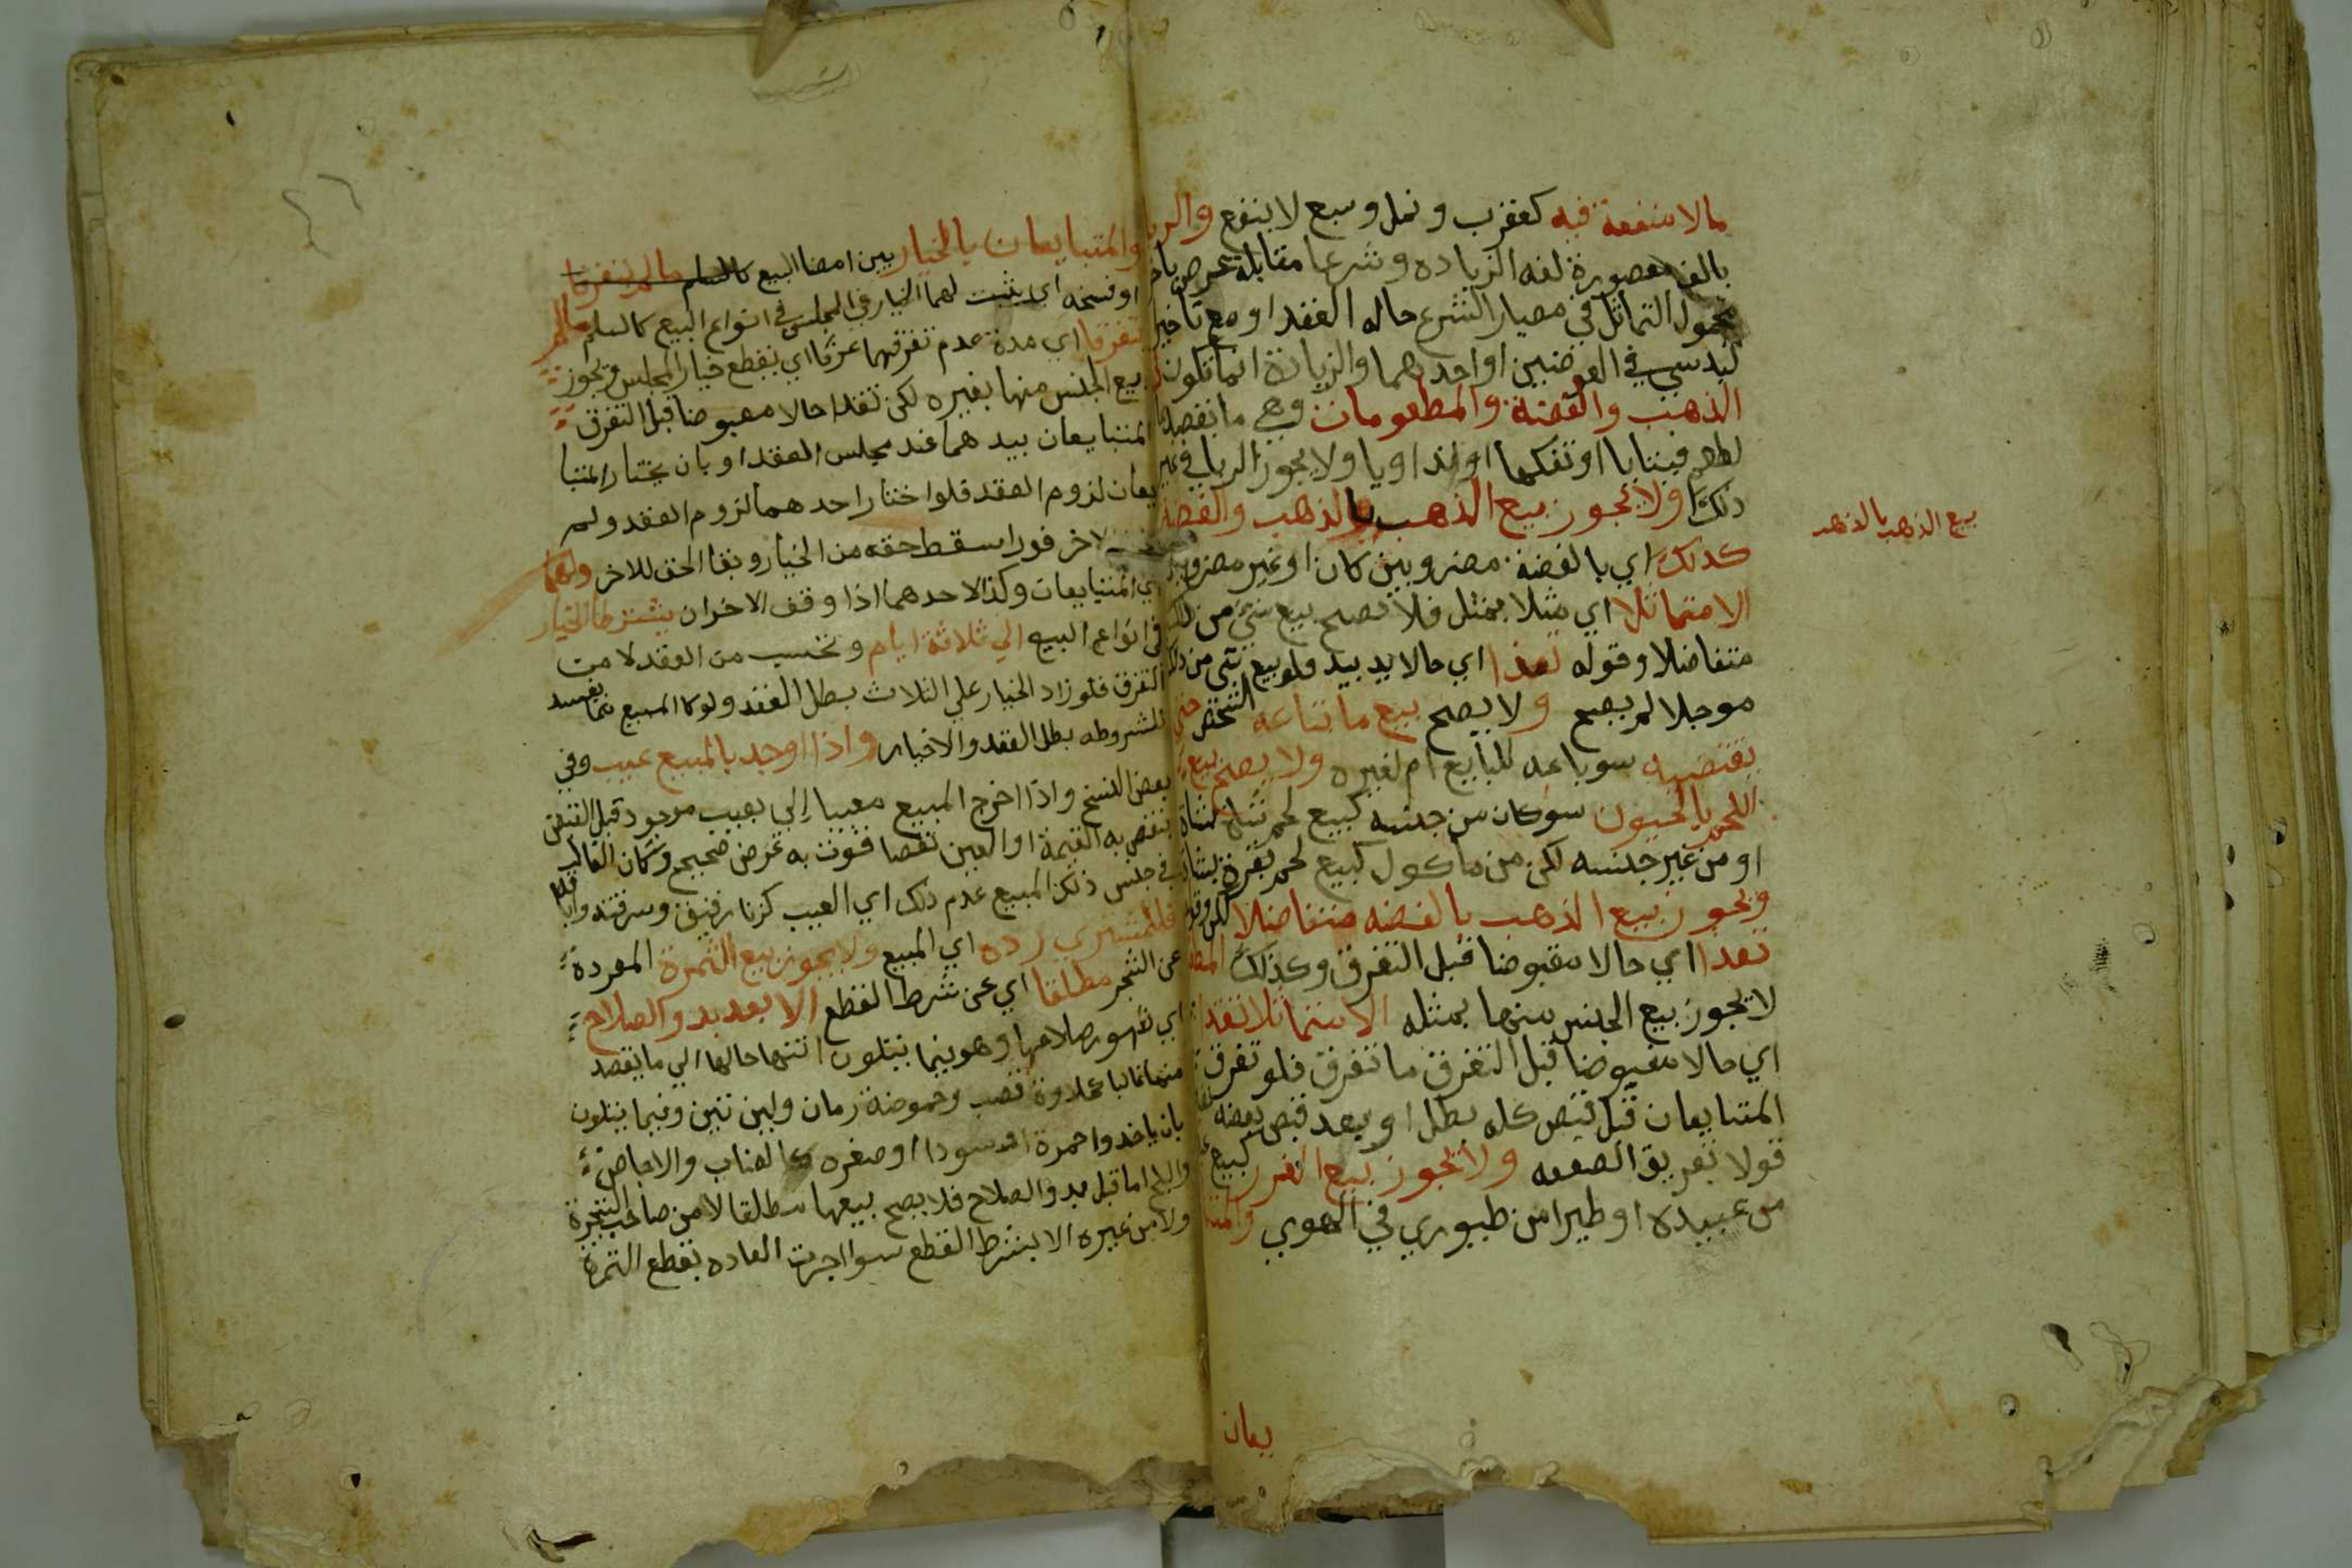 مالا منفعة فيه كعقرب ونمل وسبع لا ينفع والربا
بالف مقصورة لغه الزياده وشرعا مقابلة عوض باخر
مجهول التماثل في معيار الشرع حاله العقد او مع تاخير
في العوضين او احدهما والزيادة انما تكون
الذهب والفضة والمطعومات وهي ما يقصد
او تفكها او تداويا ولا يجوز الربا في غير
ذلك ولا يجوز بيع الذهب بالذهب والفضة
كذلك اي بالفضة مضروبين كان او غير مضروبين
الا متماثلا اي مثلا بمثل فلا يصح بيع شي من ذلك
متفاضلا وقوله نقدا اي حالا يد بيد فلو بيع شي من ذلك
موجلا لم يصح ولا يصح بيع ما ابتاعه الشخص حتى
يقتضيه سو باعه للبايع ام لغيره ولا يصح بيع
اللحم بالحيون سو كان من جنسه كبيع لحم شاة بشاة
او من غير جنسه لكن من ماكول كبيع لحم بقرة بشاة
ويجوز بيع الذهب بالفضه متفاضلا لكن
نقدا اي حالا مقبوضا قبل التفرق وكذلك
لا يجوز بيع الجنس منها بمثله الا متماثلا نقدا
اي حالا مقبوضا قبل التفرق ما تفرق فلو تفرق
المتبايعان قبل قبض كله بطل او بعد قبض بعضه
قولا تفريق الصفقه ولا يجوز بيع الغرر كبيع
من عبيده او طيرا من طيوري في الهوي
بيع الذهب بالذهب
يعان
والمتبايعان بالخيار بين امضا البيع كالسلم مالم يتفرقا
او فسخه اي يثبت لهما الخيار في المجلس في انواع البيع كالسلم مالم
يتفرقا اي مدة عدم تفرقهما عرفا اي ينقطع خيار المجلس ويجوز
بيع الجنس منها بغيره لكن نقدا حالا مقبوضا قبل التفرق
المتبايعان بيدهما عند مجلس العقد او بان يختار المتبا
يعان لزوم العقد فلو اختار احدهما لزوم العقد ولم
الاخر فورا سقط حقه من الخيار وبقا الحق للاخر ولهما
اي المتبايعان وكذا لاحدهما اذا وقف الاخر ان يشترطا الخيار
في انواع البيع الي ثلاثة ايام وتحسب من العقد لا من
التفرق فلو زاد الخيار علي الثلاث بطل العقد ولو كا المبيع مما يفسد
للشروطه بطل العقد والاخيار واذا وجد بالمبيع عيب وفي
بعض النسخ واذا اخرج المبيع معيبا الي بعيب موجود قبل القبض
تنقص به القيمة او العين نقصا فوت به غرض صحيح وكان الغالب
في جنس ذلك المبيع عدم ذلك اي العيب كزنا رقيق وسرقته واباقه
فللمشتري رده اي المبيع ولا يجوز بيع الثمرة المفردة
عن الشجر مطلقا اي عن شرط القطع الا بعد بدو الصلاح
اي ظهور صلاحها وهو فيما يتلون انتها حالها الي ما يقصد
منها غالبا كحلاوة قصب وحموضة رمان ولين تين وفيما يتلون
بان ياخذ واحمرة او سودا او صفره كالعناب والاجاص
والبلح اما قبل بدو الصلاح فلا يصح بيعها مطلقا لا من صاحب الشجرة
ولا من غيره الا بشرط القطع سوا جرت العاده بقطع الثمرة